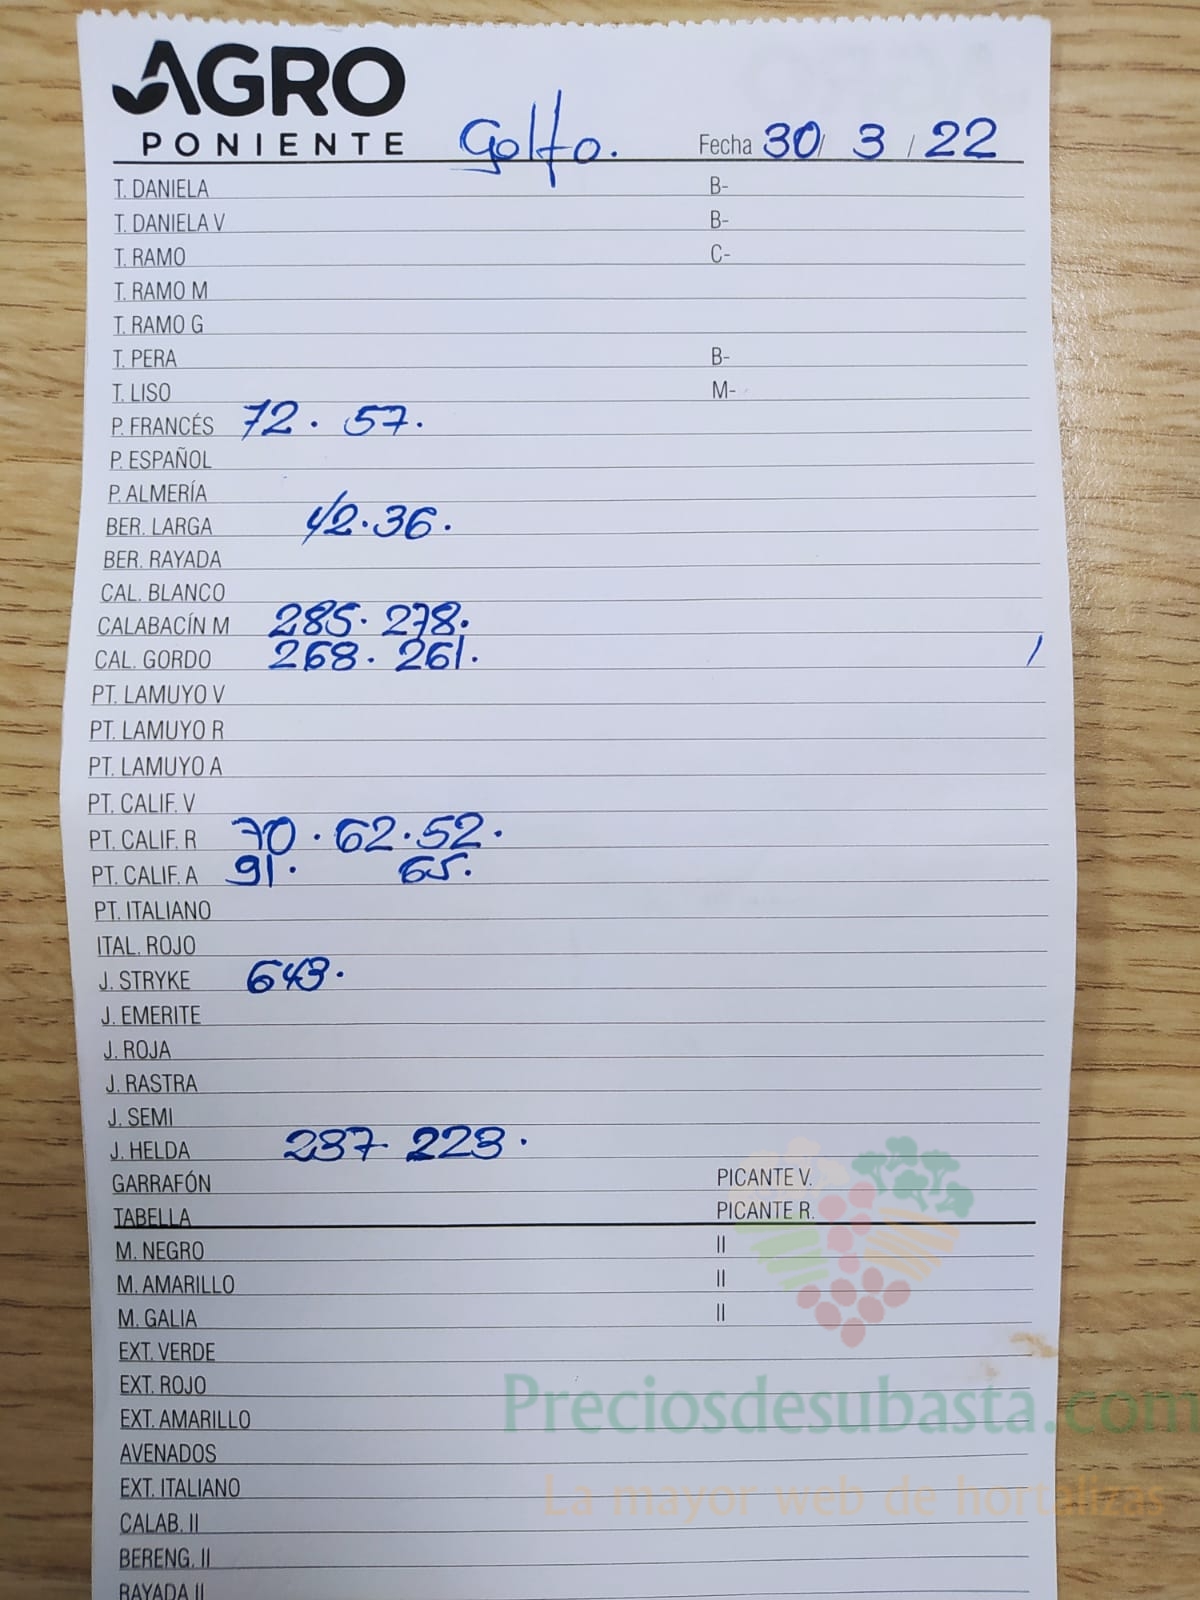 AGRO
PONIENTE Golfo. Fecha 30/ 3 / 22
T. DANIELA B-
T. DANIELA V B-
T. RAMO C-
T. RAMO M
T. RAMO G
T. PERA B-
T. LISO M-
P. FRANCÉS 72. 57.
P. ESPAÑOL
P. ALMERÍA
BER. LARGA 42.36.
BER. RAYADA
CAL. BLANCO
CALABACÍN M 285. 278.
CAL. GORDO 268. 261.
PT. LAMUYO V
PT. LAMUYO R
PT. LAMUYO A
PT. CALIF. V
PT. CALIF. R 70.62.52.
PT. CALIF. A 91. 65.
PT. ITALIANO
ITAL. ROJO
J. STRYKE 643.
J. EMERITE
J. ROJA
J. RASTRA
J. SEMI
J. HELDA 237. 223.
GARRAFÓN PICANTE V.
TABELLA PICANTE R.
M. NEGRO II
M. AMARILLO II
M. GALIA II
EXT. VERDE
EXT. ROJO
EXT. AMARILLO
Preciosdesubasta.com
AVENADOS
EXT. ITALIANO
La mayor web de hortalizas
CALAB. II
BERENG. II
RAYADA II